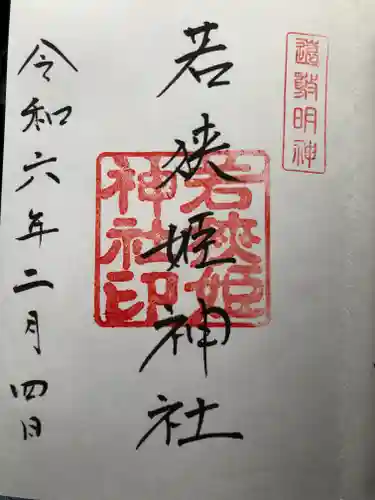 遠敷明神
若狭姫神社
若狭姫
神社印
令和六年二月四日